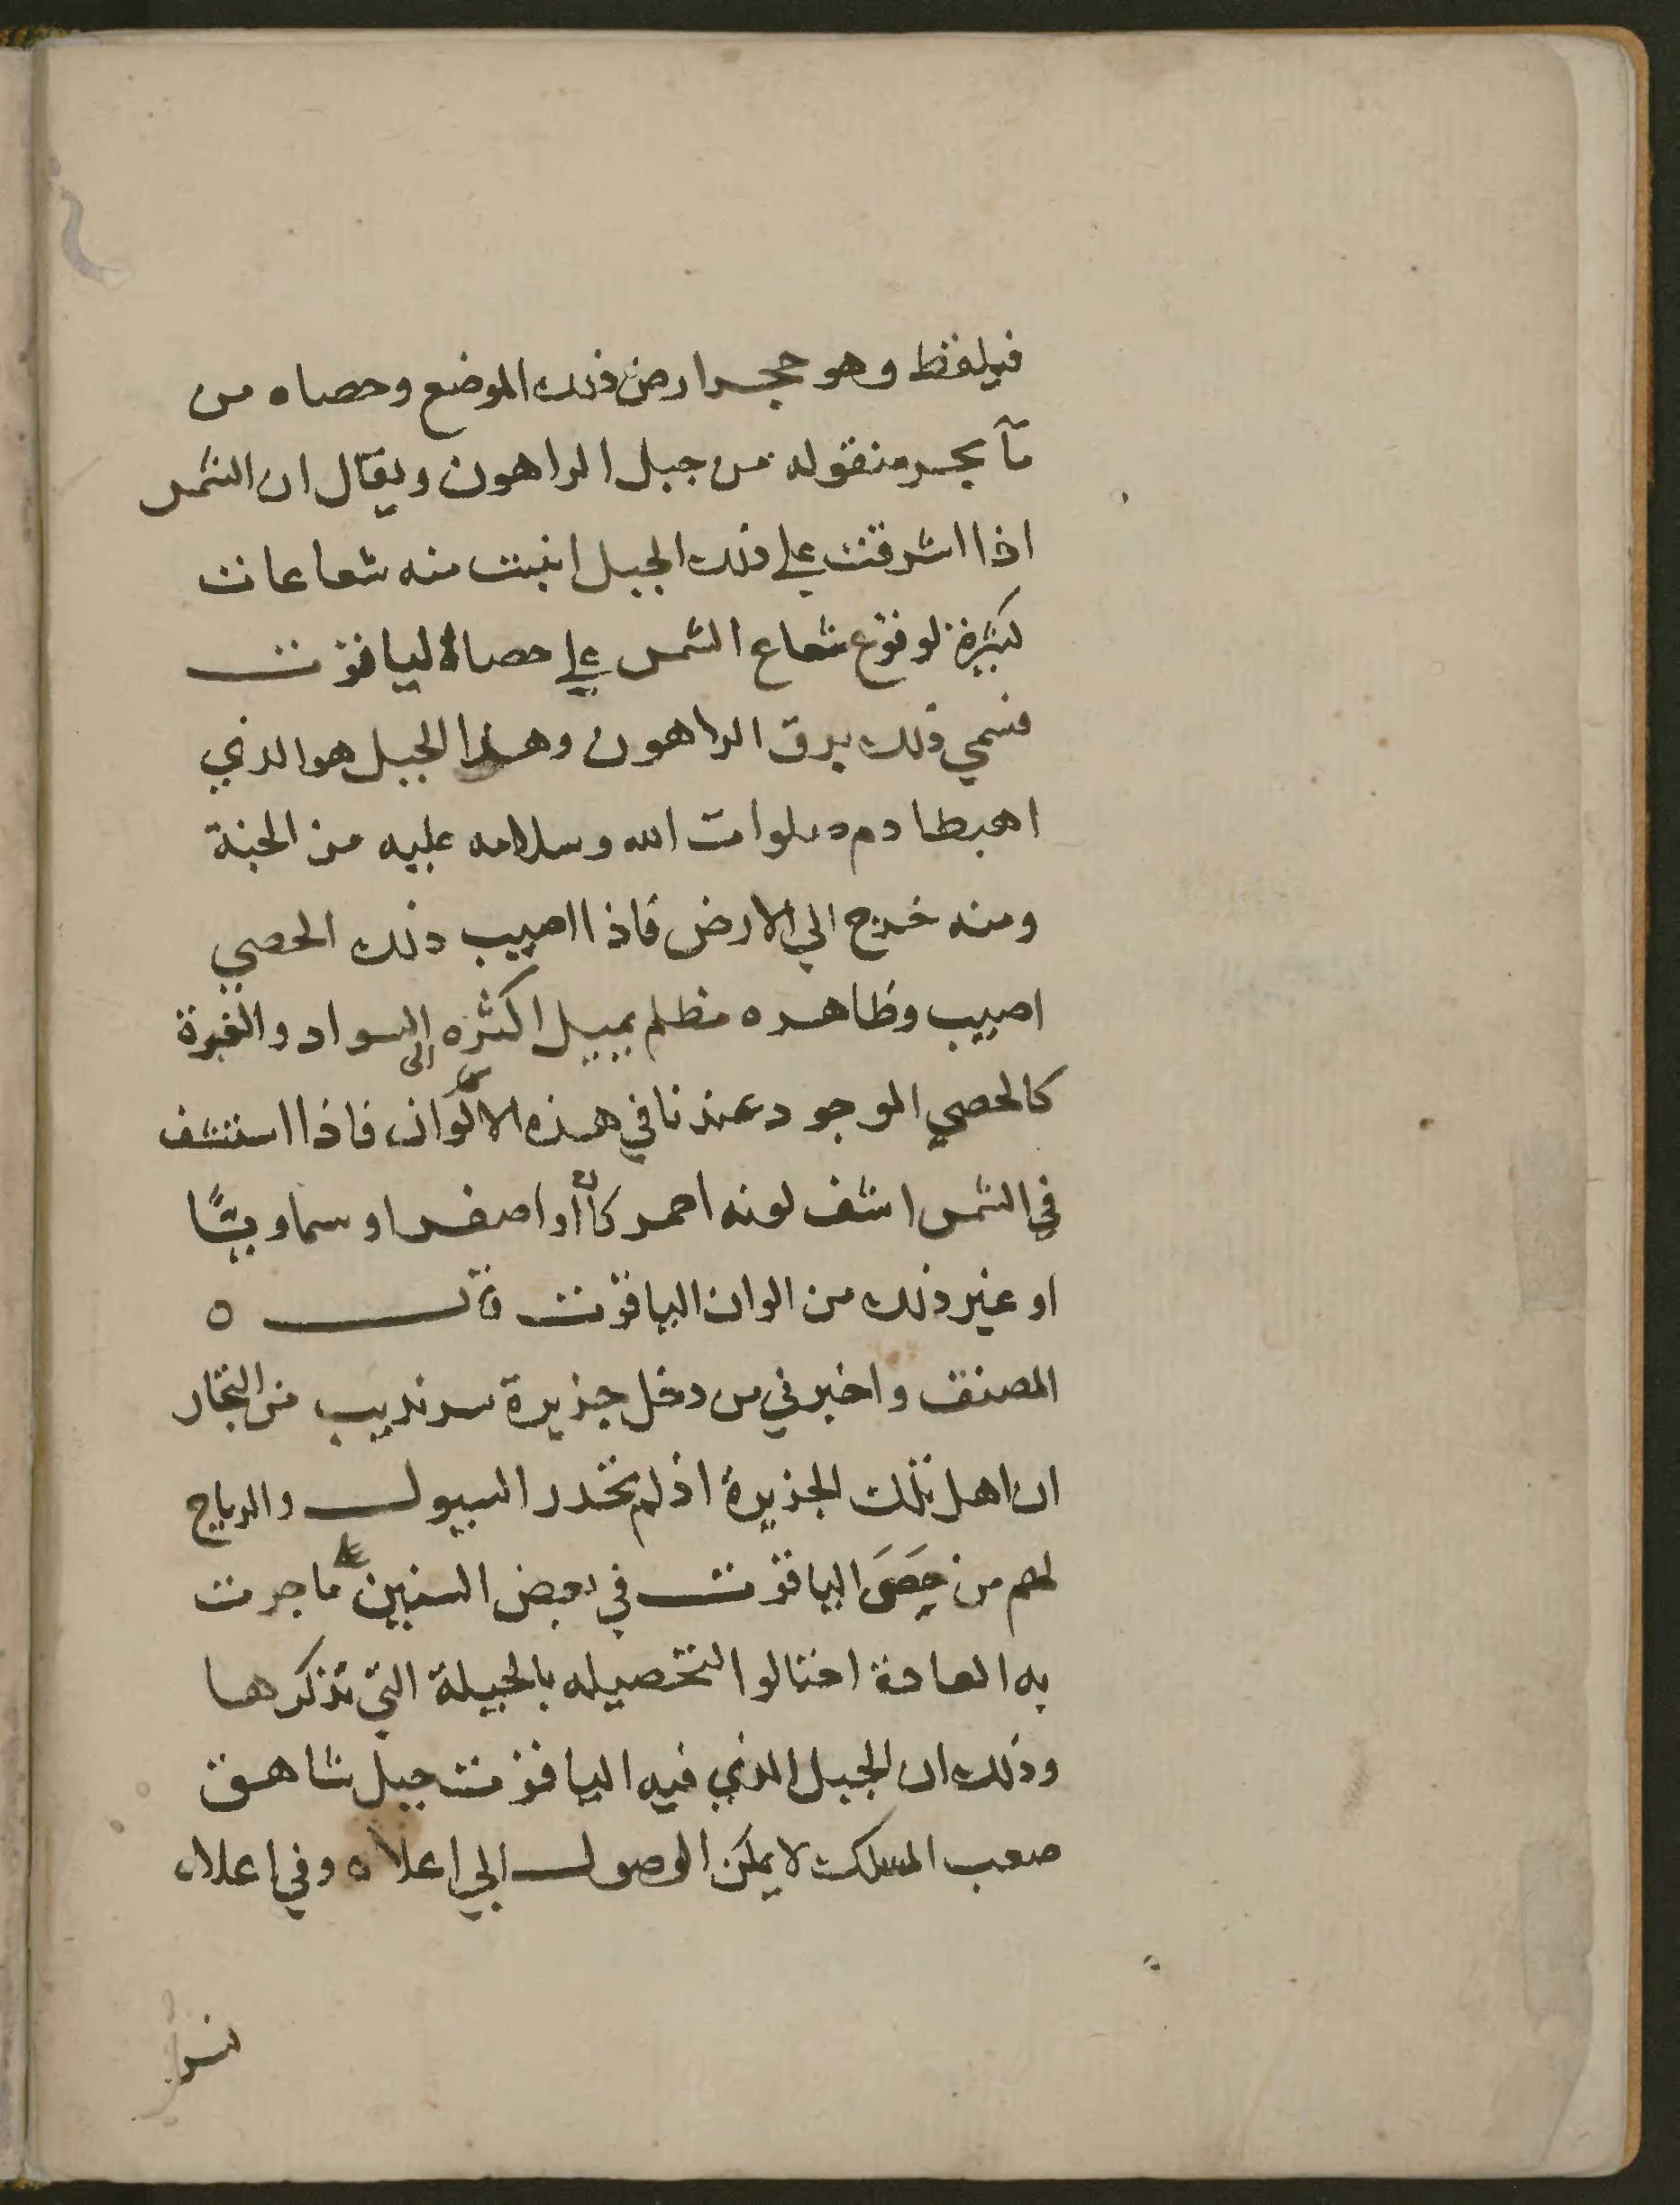 فيلقط وهو حجر ارض ذلك الموضع وحصاه من
مآ بحر منقوله من جبل الراهون ويقال ان الشمس
اذا اشرقت علي ذلك الجبل انبتت منه شعاعات
كثيرة لوقوع شعاع الشمس علي حصاة لياقوت
فسمي ذلك برق الراهون وهذا الجبل هو الذي
اهبط ادم صلوات الله وسلامه عليه من الجنة
ومنه خرج الي الارض فاذا اصيب ذلك الحصي
اصيب وظاهره مظلم يميل اكثره الي السواد والغبرة
كالحصي الموجود عندنا في هذه الاكوان فاذا استشف
في الشمس اشف لونه احمر كان او اصفر او سماويًّا
او غير ذلك من الوان الياقوت قال ه
المصنف واخبرني من دخل جزيرة سرنديب من التجار
ان اهل تلك الجزيرة اذ لم تحدر السيول والرياح
لهم من حَصَى الياقوت في بعض السنين على ما جرت
به العادة احتالوا لتحصيله بالحيلة التي تذكرها
وذلك ان الجبل الذي فيه الياقوت جبل شاهق
صعب المسلك لا يمكن الوصول الي اعلاه وفي اعلاه
نسر